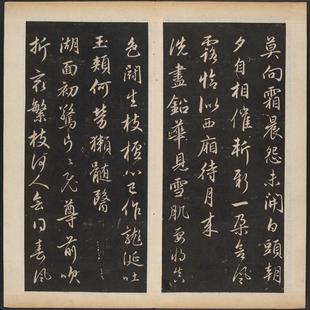 莫向霜晨怨未開白頭朝
夕自相催斬新一朶含風
露恰似西廂待月來
洗盡鉛華見雪肌要將真
色鬪生枝檀心已作龍涎吐
玉頰何勞獺髓醫
湖面初驚片〻飛尊前吹
折最繁枝何人會得春風